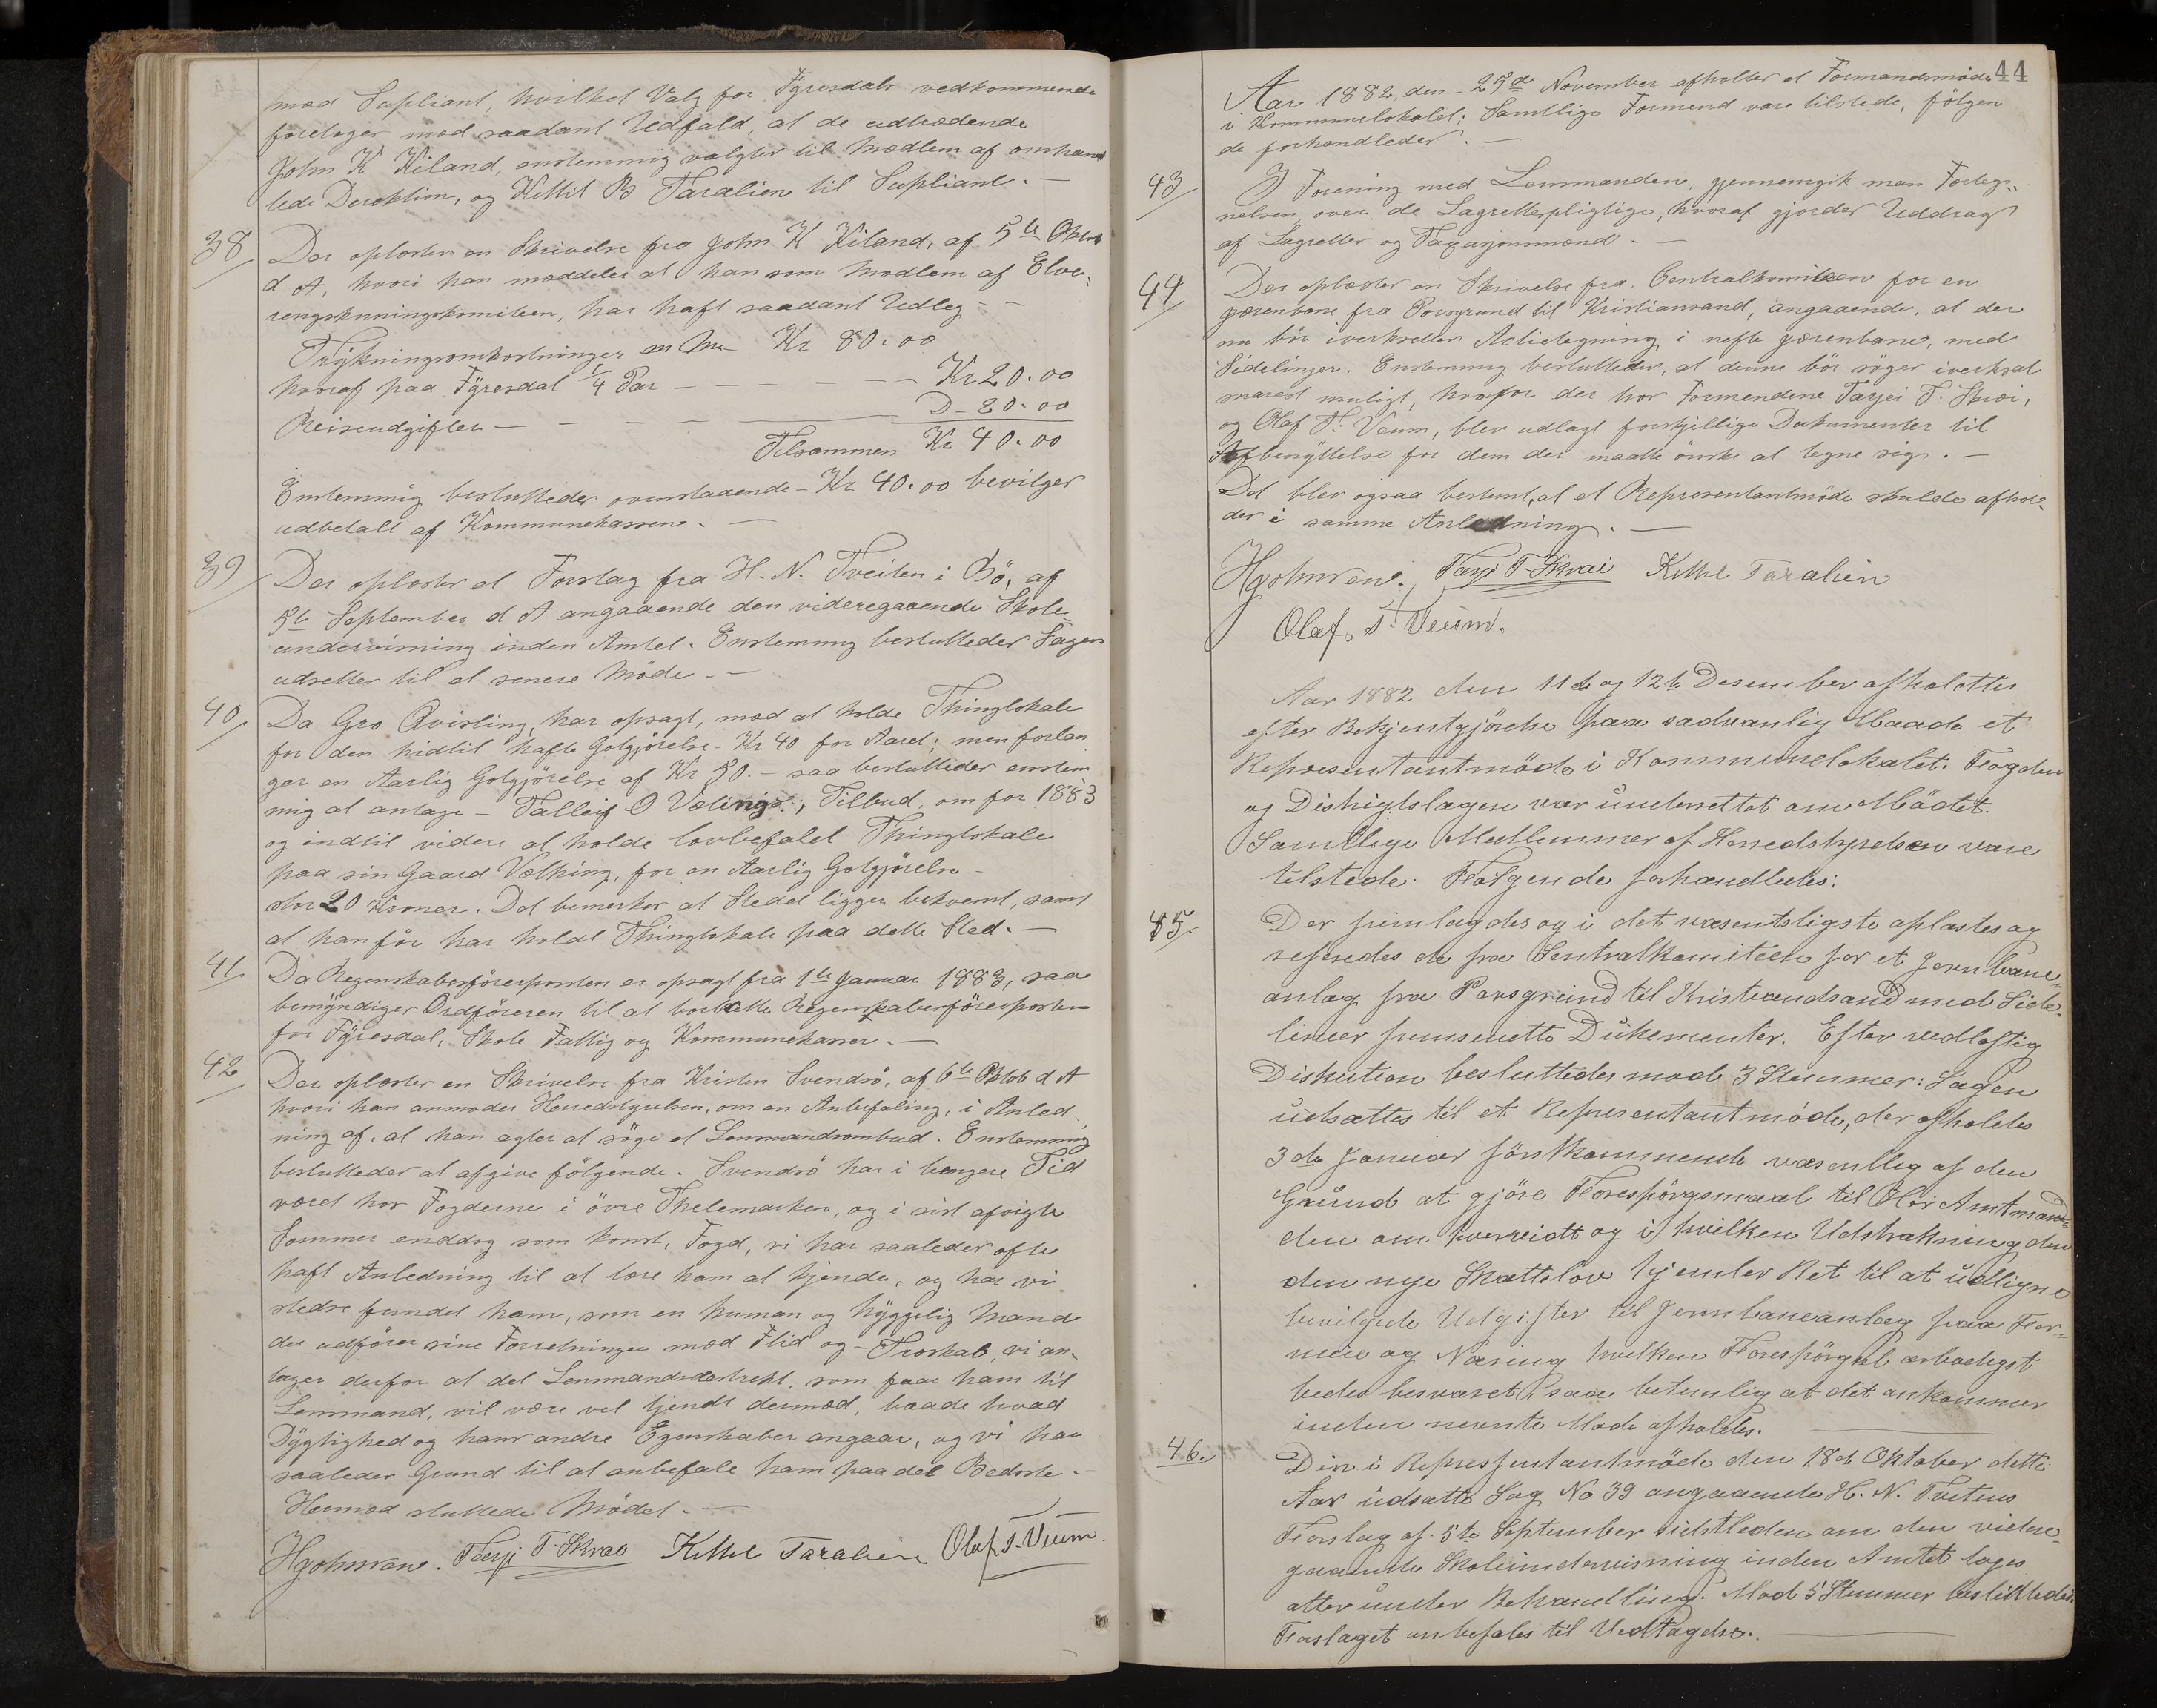 med Supliant, hvilket Valg for Fÿresdals vedkommende
foretoges med saadant Udfald, at de udtrædende
John K Kiland, enstemmig valgtes til Medlem af omhand
lede Derektion, og Kittil B Taralien til Supliant. —
38/ Der oplæstes en Skrivelse fra John K Kiland, af 5te Oktob
d A, hvori han meddeler at han som Medlem af Elve-
rengskningskomiteen, har haft saadant Udleg —
Trÿkningsomkostninger m m — Kr 80.00
hvoraf paa Fÿresdal 1/4 Par — — — — — — Kr 20.00
Reiseudgifter — — — — D — 20.00
Tilsammen Kr 40.00
Enstemmig besluttedes ovenstaaende — Kr 40.00 bevilges
udbetalt af Kommunekassen. —
39/ Der oplæstes et Forslag fra H. N. Tveiten i Bö, af
5te September d A angaaende den videregaaende Skole-
undervisning inden Amtet. Enstemmig besluttedes Sagen
udsettes til et senere Möde. —
40/ Da Gro Qvisling, har opsagt, med at holde Thinglokale
for den hidtil hafte Golgjörelse — Kr 40 for Aaret; men forlan
ger en Aarlig Golgjörelse af Kr 50. — saa besluttedes enstem
mig at antage — Talleif O Vælings, Tilbud, om for 1883
og indtil videre at holde lovbefalet Thinglokale
paa sin Gaard Vælhing, for en Aarlig Golgjörelse —
stor 20 Kroner. Det bemerkes at Stedet ligger bekvemt, samt
at han för har holdt Thinglokale paa dette Sted. —
41/ Da Regnskabsförerposten er opsagt fra 1te Januar 1883, saa
bemÿndiges Ordföreren til at bortsætte Regnskabsförerposten
for Fÿresdal, Skole Fattig og Kommunekasser. —
42/ Der oplæstes en Skrivelse fra Kristen Svendsö, af 6te Oktob d A
hvori han anmoder Herredstyrelsen, om en Anbefaling, i Anled
ning af, at han agter at söge et Lensmandsombud. Enstemmig
besluttedes at afgive fölgende. Svendsö har i længere Tid
været hos Fogderne i övre Thelemarken, og i sist afvigte
Sommer enddog som konst, Fogd, vi har saaledes ofte
haft Anledning til at lære ham at kjende, og har vi
stedse fundet ham, som en human og hÿggelig Mand
der udförer sine Forretninger med Flid og — Troskab, vi an-
tager derfor at det Lensmandsdestrekt, som faar ham til
Lensmand, vil være vel tjendt dermed, baade hvad
Dÿgtighed og hans andre Egenskaber angaar, og vi har
saaledes Grund til at anbefale ham paa det Bedste. —
Hermed sluttede Mödet. —
Hgohnsen. Tarjei T. Skrae Kittel Taralien Olaf T. Veum.
44
Aar 1882, den 25de November afholdtes et Formandsmöde
i Kommunelokalet; Samtlige Formend vare tilstede, fölgen
de forhandledes. —
43/ I Forening med Lensmanden, gjennemgik man Forteg-
nelsen over de Lagretterpligtige, hvoraf gjordes Uddrag
af Lagretter og Taxasjonsmænd. —
44/ Der oplæstes en Skrivelse fra Centralkomiteen for en
jærenbane fra Porsgrund til Kristiansand, angaaende, at der
nu bör iverksettes Actietegning i nefte jærenbane, med
Sidelinjer. Enstemmig besluttedes, at denne bör söges iverksat
snarest muligt, hvorfor der hos Formendene Tarjei T. Skræi,
og Olaf T. Veum, blev udlagt forskjellige Dokumenter til
Afbenÿttelse for dem der maatte önske at tegne sig. —
Det blev ogsaa bestemt, at et Representantmöde skulde afhol-
des i samme Anledning. —
Hgohnsen. Tarjei T. Skræi Kittel Taralien
Olaf T. Veum.
Aar 1882 den 11te og 12te Desember afholdtes
efter Bekjentgjörelse paa sædvanlig Maade et
Representantmöde i Kommunelokalet. Fogden
og Distrigtslægen var underrettet om Mödet.
Samtlige Medlemmer af Herredstyrelsen vare
tilstede. Fölgende forhandledes:
45. Der fremlagdes og i det væsentligste oplæstes og
refereredes de fra Sentralkomiteen for et Jernbane-
anlæg fra Porsgrund til Kristiandsand med Side-
linier fremsendte Dukumenter. Efter vidløftig
Diskution besluttedes mod 3 Stemmer: Sagen
udsættes til et Representantmöde, der afholdes
3de Januar förstkommende væsentlig af den
Grund at gjöre Forespörgsmaal til Hr Amtmand-
den om hvorvidt og i hvilken Udstrækning den
den nye Skattelov hjemler Ret til at udligne
bevilgede Udgifter til Jernbaneanlæg paa For-
mue og Næring hvilken Forespörgsel ærbødigst
bedes besvaret saa betimelig at det ankommer
inden nevnte Möde afholdes.
46. Den i Representantmöde den 18de Oktober dette
Aar udsatte Sag No 39 angaaende H. N. Tveitens
Forslag af 5te September sidstleden om den videre-
gaaende Skoleundervisning inden Amtet toges
atter under Behandling. Mod 5 Stemmer besluttedes
Forslaget anbefales til Vedtagelse.